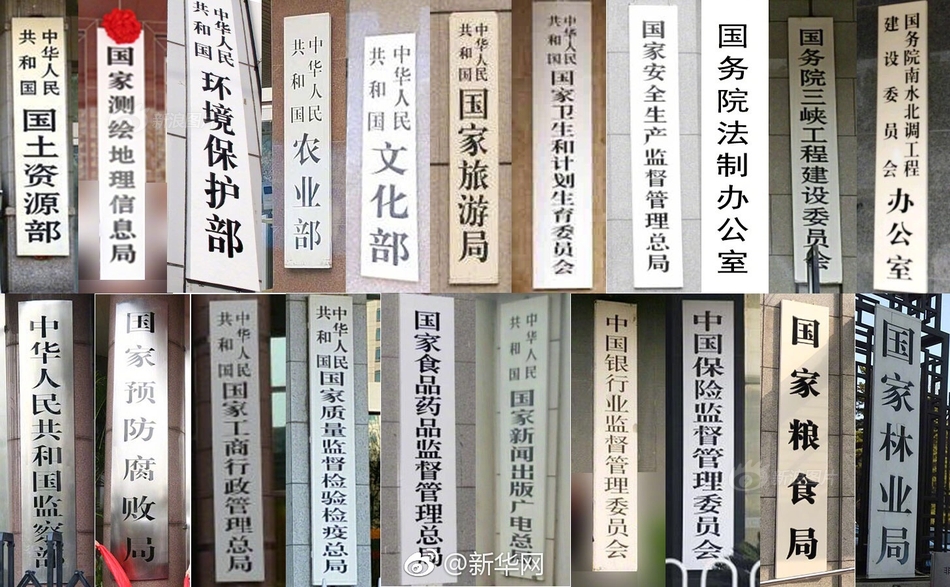 中华人民共和国国土资源部
国家测绘地理信息局
中华人民共和国环境保护部
中华人民共和国农业部
中华人民共和国文化部
中华人民共和国国家旅游局
中华人民共和国国家卫生和计划生育委员会
国家安全生产监督管理总局
国务院法制办公室
国务院三峡工程建设委员会
国务院南水北调工程建设委员会办公室
中华人民共和国监察部
国家预防腐败局
中华人民共和国国家工商行政管理总局
中华人民共和国国家质量监督检验检疫总局
国家食品药品监督管理总局
中华人民共和国国家新闻出版广电总局
中国银行业监督管理委员会
中国保险监督管理委员会
国家粮食局
国家林业局
@新华网